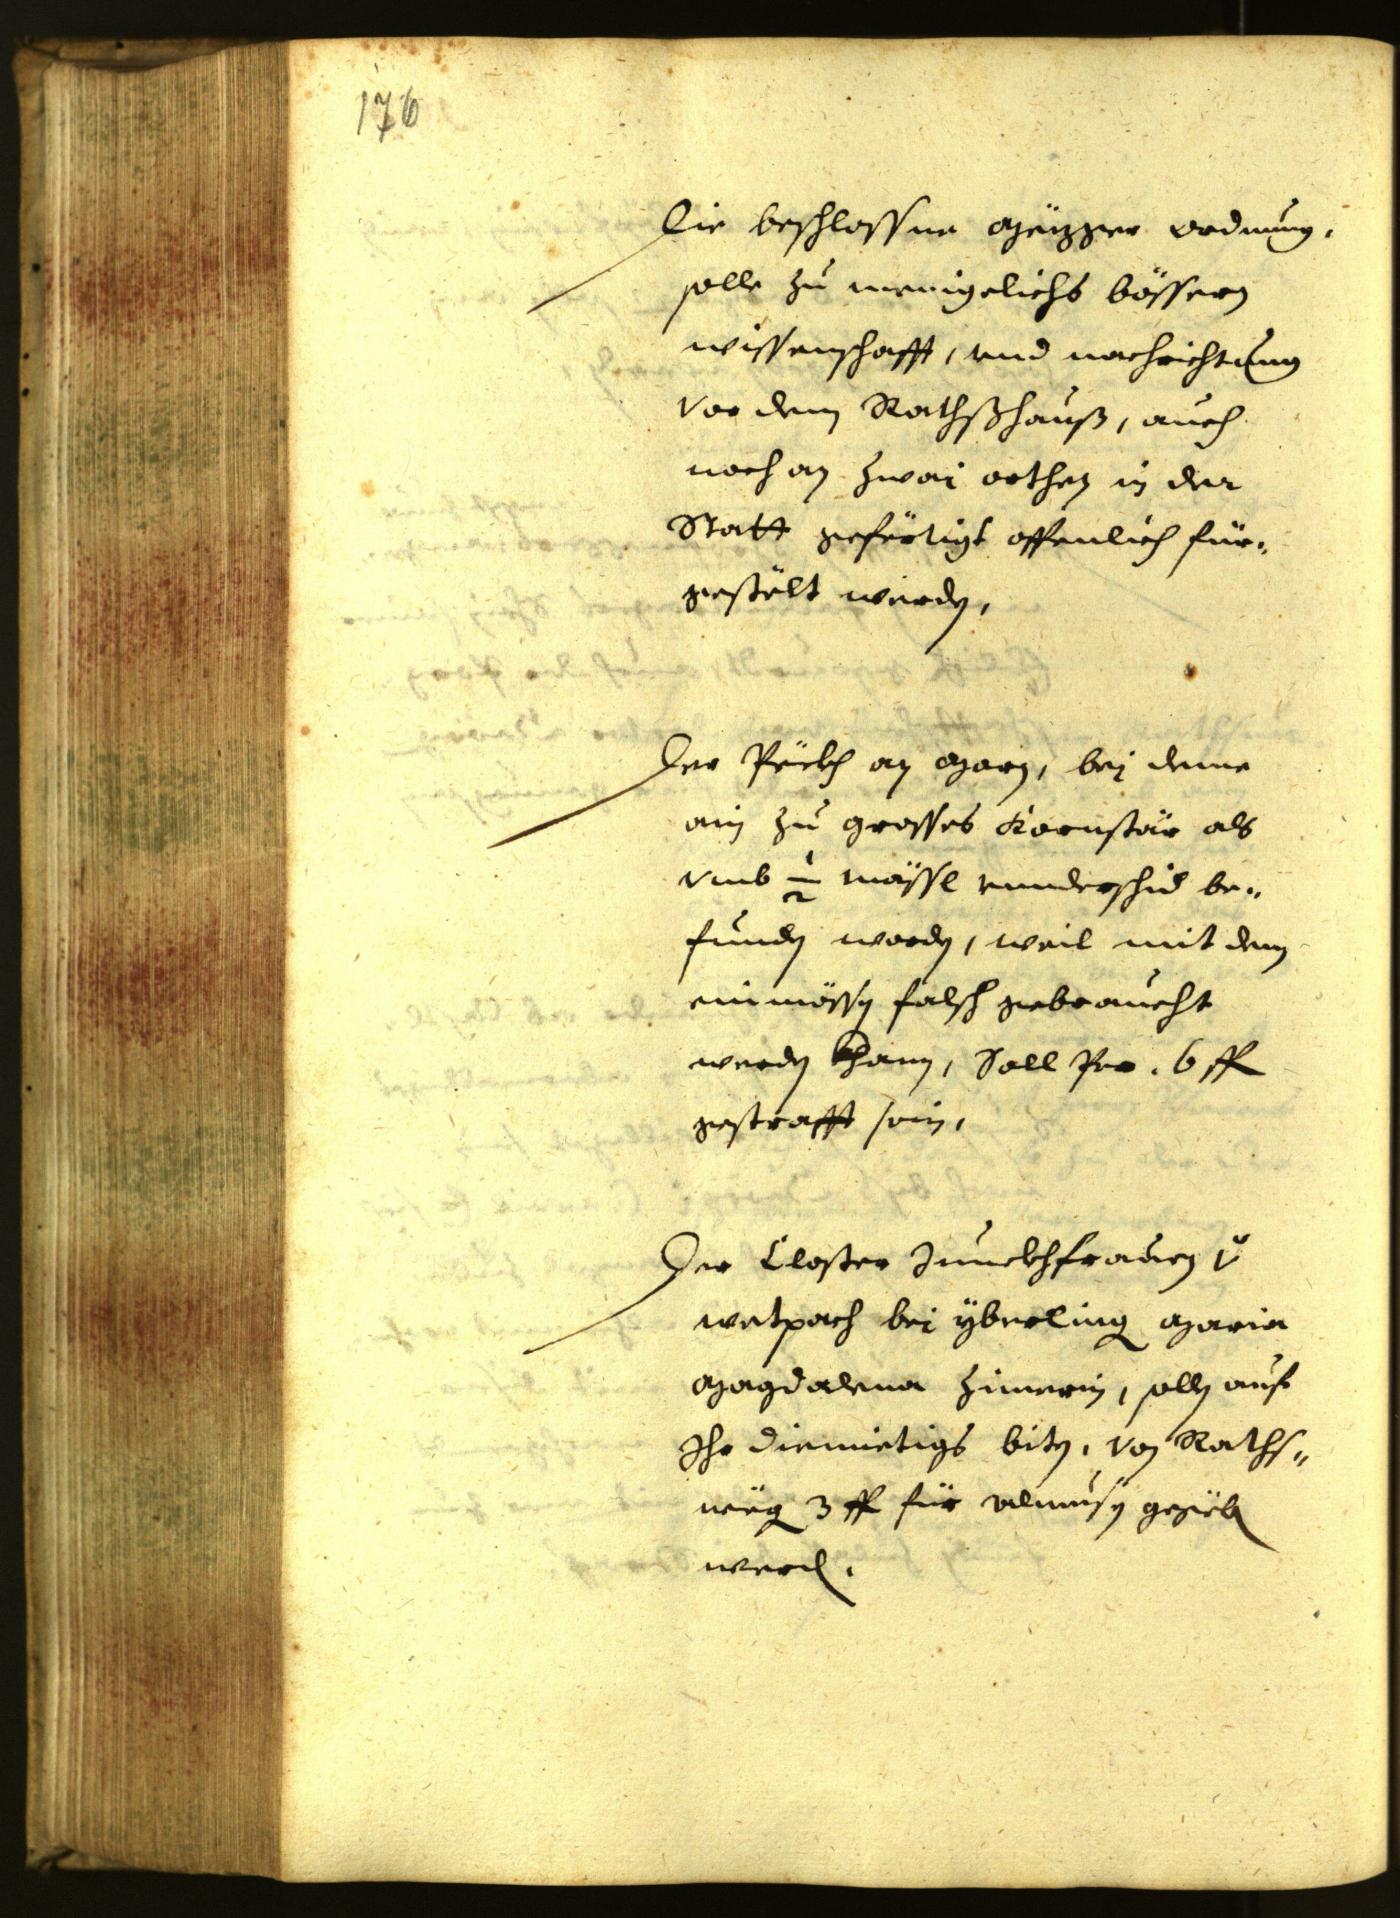 176
Die beschlossne Mezger ordnung,
solle zu menigelichs bössern
wissenschafft, vnd nachrichtung
vor dem Rathshauß, auch
noch an zwai orthen in der
Statt gefertigt offenlich für„
gestelt werden,
Der Pëckh an Marn, bej deme
ain zu grosses Kornstär als
vmb 1/2 mässl vnnderschid be„
funden worden, weil mit dem
einmössn falsch gebraucht
werden khann, Soll per . 6 ff
gestrafft sein,
Der Closter Junckhfrauen v̈
watpach bej yberling Maria
Magdalena Zimerin, solln auf
Ihr diemietigs biten, von Raths„
weg 3 ff für almusn geziëlt
werden.